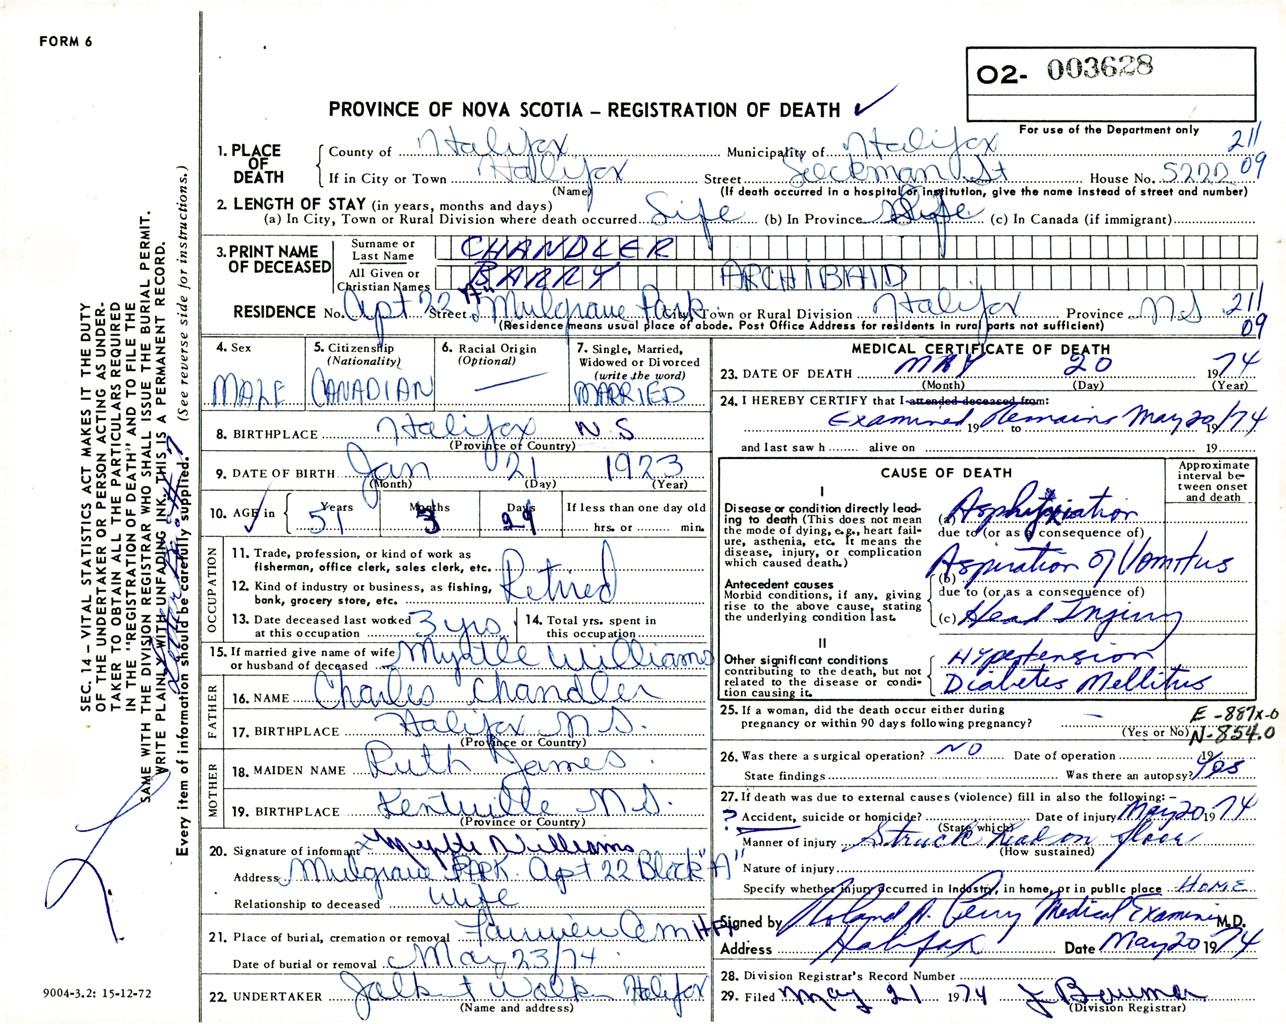 FORM 6
O2- 003628
PROVINCE OF NOVA SCOTIA – REGISTRATION OF DEATH ✓
For use of the Department only
211
09
1. PLACE OF DEATH
County of Halifax Municipality of Halifax
If in City or Town Halifax Street St House No. 5222
(Name) (If death occurred in a hospital or institution, give the name instead of street and number)
2. LENGTH OF STAY (in years, months and days)
(a) In City, Town or Rural Division where death occurred Life (b) In Province Life (c) In Canada (if immigrant)
3. PRINT NAME OF DECEASED
Surname or Last Name CHANDLER
All Given or Christian Names BARRY ARCHIBALD
RESIDENCE No. Apt 22 "A" Street Mulgrave Park City, Town or Rural Division Halifax Province N S
211
09
(Residence means usual place of abode. Post Office Address for residents in rural parts not sufficient)
4. Sex
MALE
5. Citizenship (Nationality)
CANADIAN
6. Racial Origin (Optional)
—
7. Single, Married, Widowed or Divorced (write the word)
MARRIED
8. BIRTHPLACE Halifax N S
(Province or Country)
9. DATE OF BIRTH Jan 21 1923
(Month) (Day) (Year)
10. AGE in ✓ Years 51 Months 3 Days 29 If less than one day old
hrs. or min.
OCCUPATION
11. Trade, profession, or kind of work as fisherman, office clerk, sales clerk, etc.
12. Kind of industry or business, as fishing, bank, grocery store, etc.
Retired
13. Date deceased last worked at this occupation 3 yrs
14. Total yrs. spent in this occupation
15. If married give name of wife or husband of deceased Myrtle Williams
FATHER
16. NAME Charles Chandler
17. BIRTHPLACE Halifax N.S.
(Province or Country)
MOTHER
18. MAIDEN NAME Ruth James
19. BIRTHPLACE Kentville N.S.
(Province or Country)
20. Signature of informant x Myrtle Williams
Address Mulgrave Park Apt 22 Block "A"
Relationship to deceased Wife
21. Place of burial, cremation or removal HFX
Date of burial or removal May 23/74
22. UNDERTAKER Halifax
(Name and address)
MEDICAL CERTIFICATE OF DEATH
23. DATE OF DEATH MAY 20 1974
(Month) (Day) (Year)
24. I HEREBY CERTIFY that I attended deceased from:
Examined Remains May 20/74
19 to
and last saw h alive on 19
CAUSE OF DEATH
Approximate interval between onset and death
I
Disease or condition directly leading to death (This does not mean the mode of dying, e.g., heart failure, asthenia, etc. It means the disease, injury, or complication which caused death.)
(a) Asphyxiation
due to (or as a consequence of)
Antecedent causes
Morbid conditions, if any, giving rise to the above cause, stating the underlying condition last.
(b) Aspiration of Vomitus
due to (or as a consequence of)
(c) Head Injury
II
Other significant conditions contributing to the death, but not related to the disease or condition causing it.
Hypertension
Diabetes Mellitus
25. If a woman, did the death occur either during pregnancy or within 90 days following pregnancy? —
(Yes or No)
E-887x-0
N-854.0
26. Was there a surgical operation? NO Date of operation 19
State findings Was there an autopsy? Yes
27. If death was due to external causes (violence) fill in also the following: –
? Accident, suicide or homicide? Date of injury May 20 1974
(State which)
Manner of injury Struck head on floor
(How sustained)
Nature of injury
Specify whether injury occurred in Industry, in home, or in public place HOME
Signed by Roland A. Perry Medical Examiner M.D.
Address Halifax Date May 20 1974
28. Division Registrar's Record Number
29. Filed May 21 1974
(Division Registrar)
SEC. 14 – VITAL STATISTICS ACT MAKES IT THE DUTY
OF THE UNDERTAKER OR PERSON ACTING AS UNDER-
TAKER TO OBTAIN ALL THE PARTICULARS REQUIRED
IN THE "REGISTRATION OF DEATH" AND TO FILE THE
SAME WITH THE DIVISION REGISTRAR WHO SHALL ISSUE THE BURIAL PERMIT.
WRITE PLAINLY WITH UNFADING INK. THIS IS A PERMANENT RECORD.
Every item of information should be carefully supplied. (See reverse side for instructions.)
9004-3.2: 15-12-72